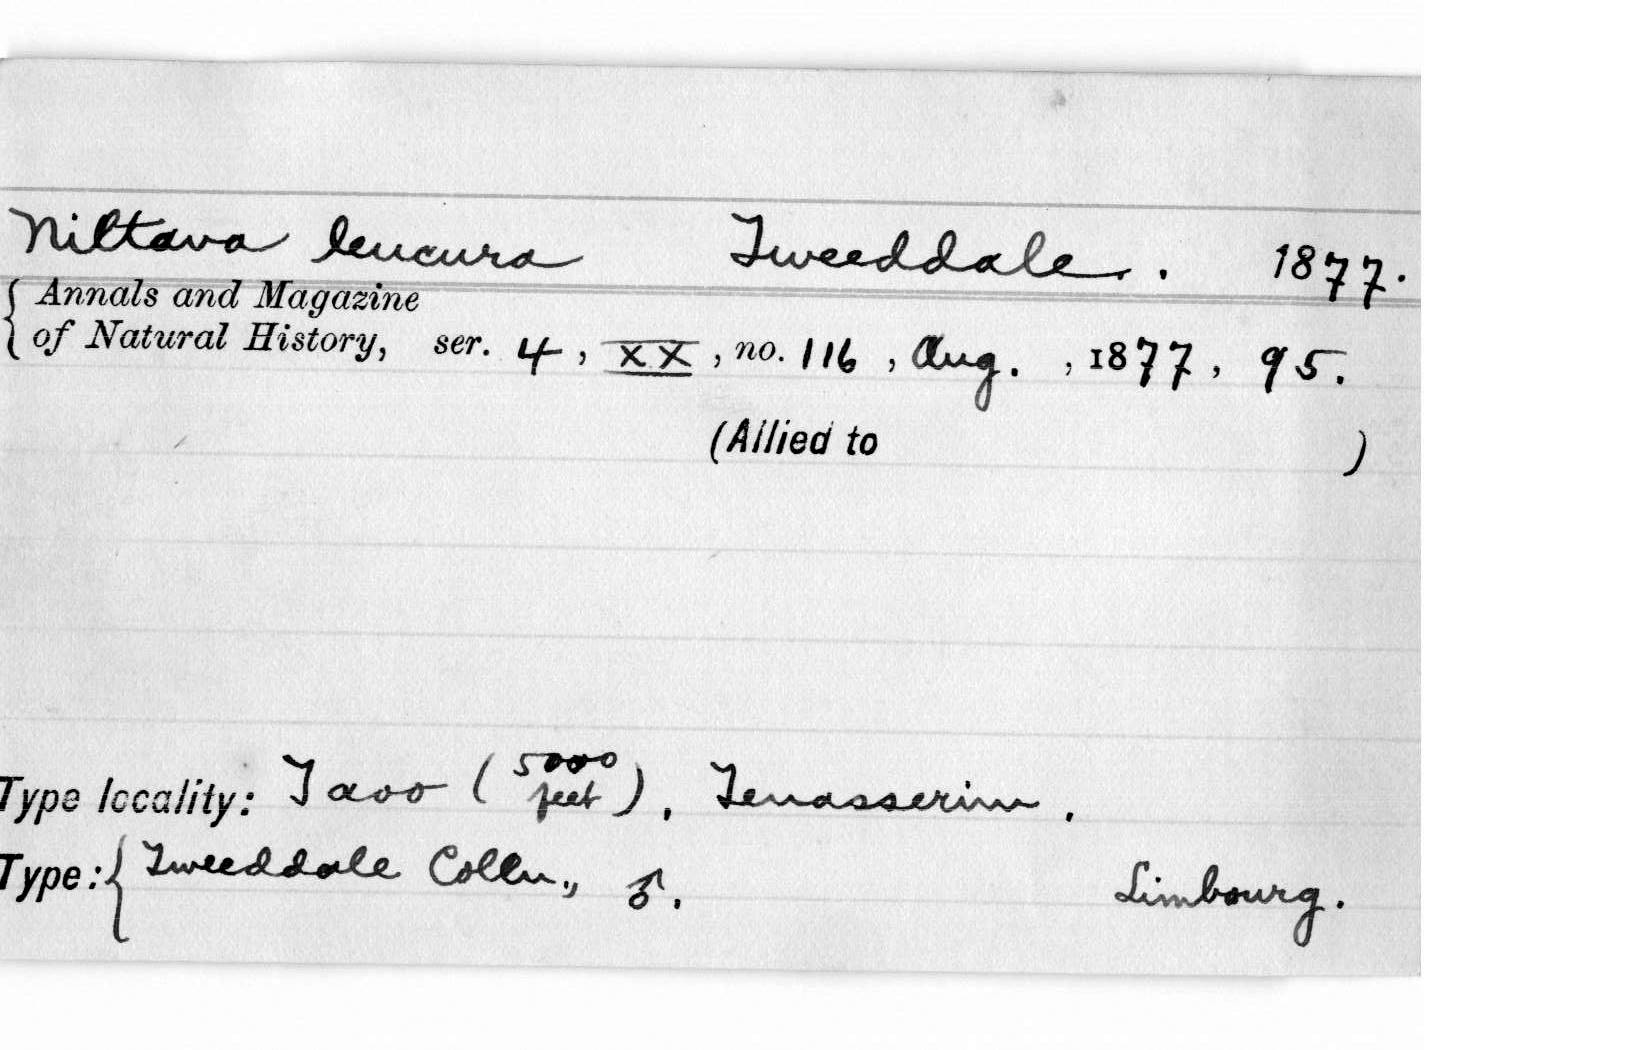 Niltava leucura Tweeddale. . 1877.
{ Annals and Magazine
of Natural History, ser. 4, XX, no. 116, Aug. , 1877, 95.
(Allied to )
Type locality: Taoo (5000 feet), Tenasserim.
Type: { Tweeddale Colln., ♂. Limbourg.